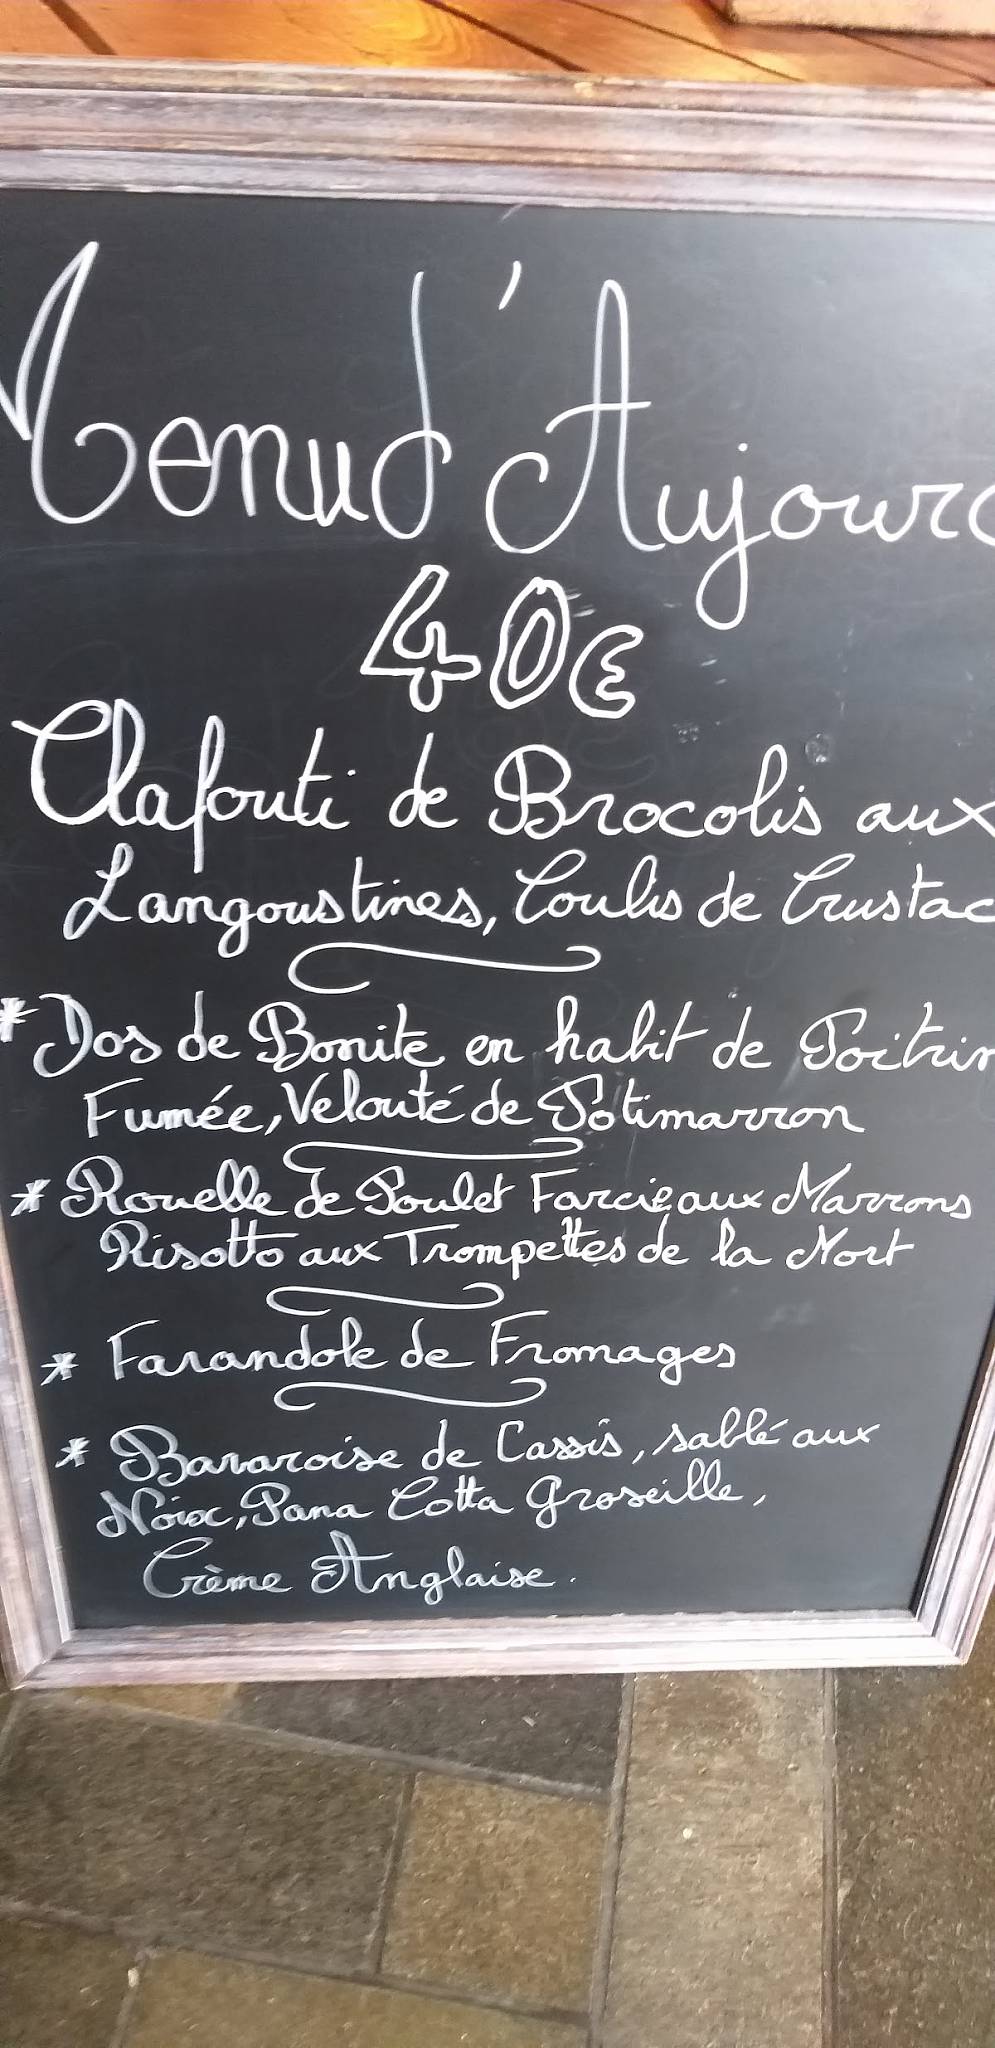 Menu d'Aujourd
40€
Clafouti de Brocolis aux
Langoustines, Coulis de Crustac
* Dos de Bonite en habit de Poitrin
Fumée, Velouté de Potimarron
* Rouelle de Poulet Farcie aux Marrons
Risotto aux Trompettes de la Mort
* Farandole de Fromages
* Bavaroise de Cassis, sablé aux
Noix, Pana Cotta Groseille,
Crème Anglaise.